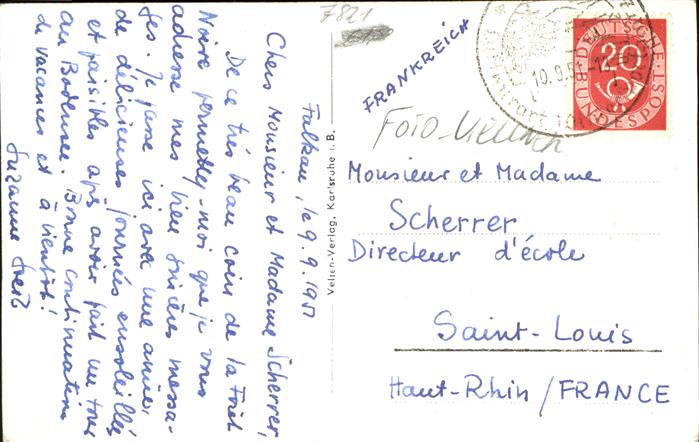 Falkau, le 9.9.1951
Chers Monsieur et Madame Scherrer,
De ce très beau coin de la Forêt
Noire permettez-moi que je vous
adresse mes bien sincères messa-
ges. Je passe ici avec une amie,
de délicieuses journées ensoleillées
et paisibles après avoir fait un tour
au Bodensee. Bonne continuation
de vacances et à bientôt!
Suzanne
7821
FRANKREICH
Foto
10.9.51-12
Luftkurort
DEUTSCHE
20
BUNDESPOST
Velsen-Verlag, Karlsruhe i. B.
Monsieur et Madame
Scherrer
Directeur d'école
Saint-Louis
Haut-Rhin/FRANCE